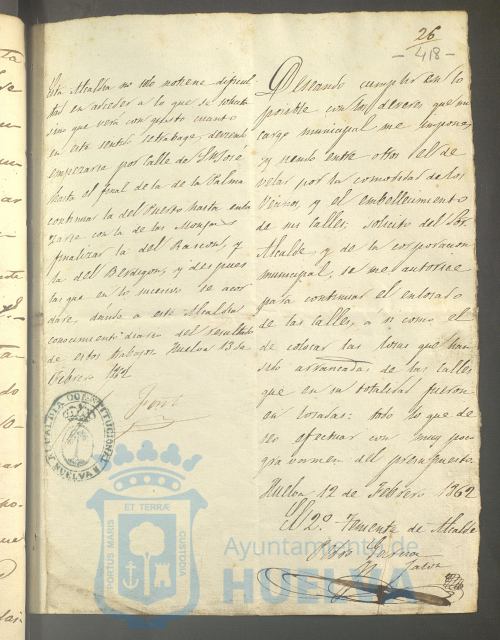 26
- 418 -
Esta Alcaldia no solo no tiene dificul-
tad en acceder a lo que se solicita
sino que verá con gusto cuanto
en este sentido se trabaje, debiendo
empezarse por calle de S. José
hasta el final de la de la Palma
continuar la del Puerto hasta enla-
zarse con la de las Monjas
finalizar la del Rascon, y
la del Berdigon, y despues
las que en lo sucesivo se acor-
dare, dando a esta Alcaldia
conocimiento diario del resultado
de estos trabajos. Huelva 13 de
Febrero
ALCALDIA CONSTITUCIONAL
HUELVA
Deseando cumplir en lo
posible con los deveres que mi
cargo municipal me impone,
y siendo entre otros el de
velar por la comodidad de los
Vecinos, y el embellecimiento
de sus calles; solicito del Sor.
Alcalde, y de la corporacion
municipal, se me autorice
para continuar el enlosado
de las calles, a si como el
de colocar las losas que han
sido arrancadas de las calles
que en su totalidad fueron
en losadas: todo lo que de
seo efectuar con muy po
gravamen del presupuesto
Huelva 12 de Febrero 1862
El 2º Teniente de Alcalde
PORTUS MARIS ET TERRÆ CUSTODIA
Ayuntamiento de
HUELVA